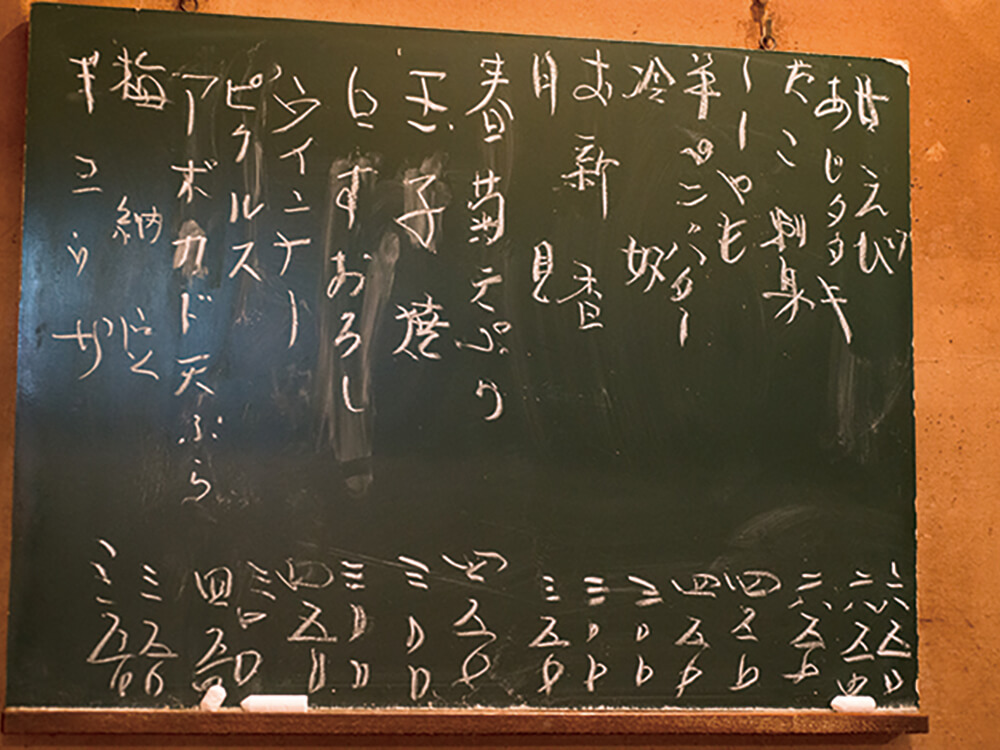 甘えび 六五〇
あじタタキ 六五〇
たこ刺身 六五〇
ししゃも 四五〇
バター 四五〇
冷奴 三〇〇
お新香 三〇〇
月見 三五〇
春菊天ぷら 四五〇
玉子焼 三〇〇
しらすおろし 三〇〇
ウインナー 四五〇
ピクルス 三〇〇
アボカド天ぷら 四五〇
梅納豆 三五〇
ギョウザ 三五〇